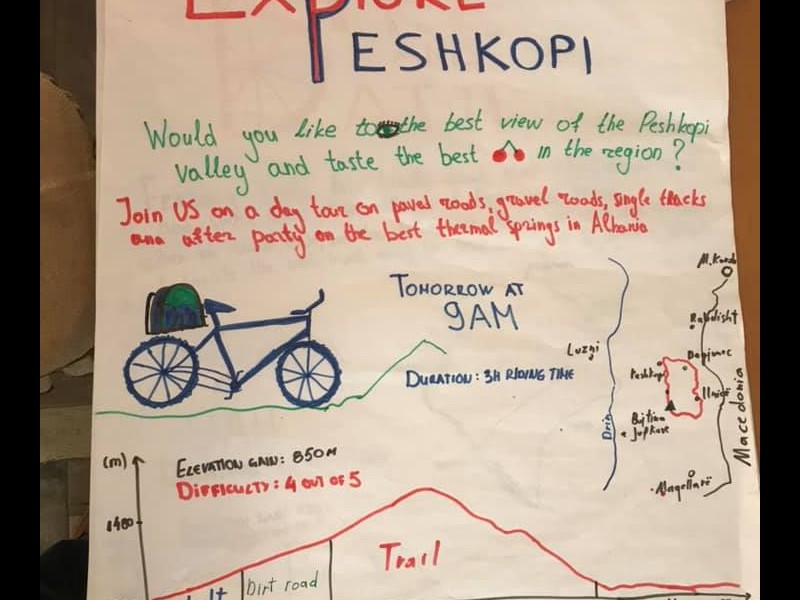 EXPLORE
PESHKOPI
Would you like to the best view of the Peshkopi
valley and taste the best in the region?
Join US on a day tour on paved roads, gravel roads, single tracks
and after party on the best thermal springs in Albania
TOMORROW AT
9AM
DURATION: 3H RIDING TIME
M.Korab
Rabdisht
Luzni
Peshkopi
Bujtina
Drin
Macedonia
(m)
ELEVATION GAIN: 850M
DIFFICULTY: 4 OUT OF 5
1400
Trail
Dirt road